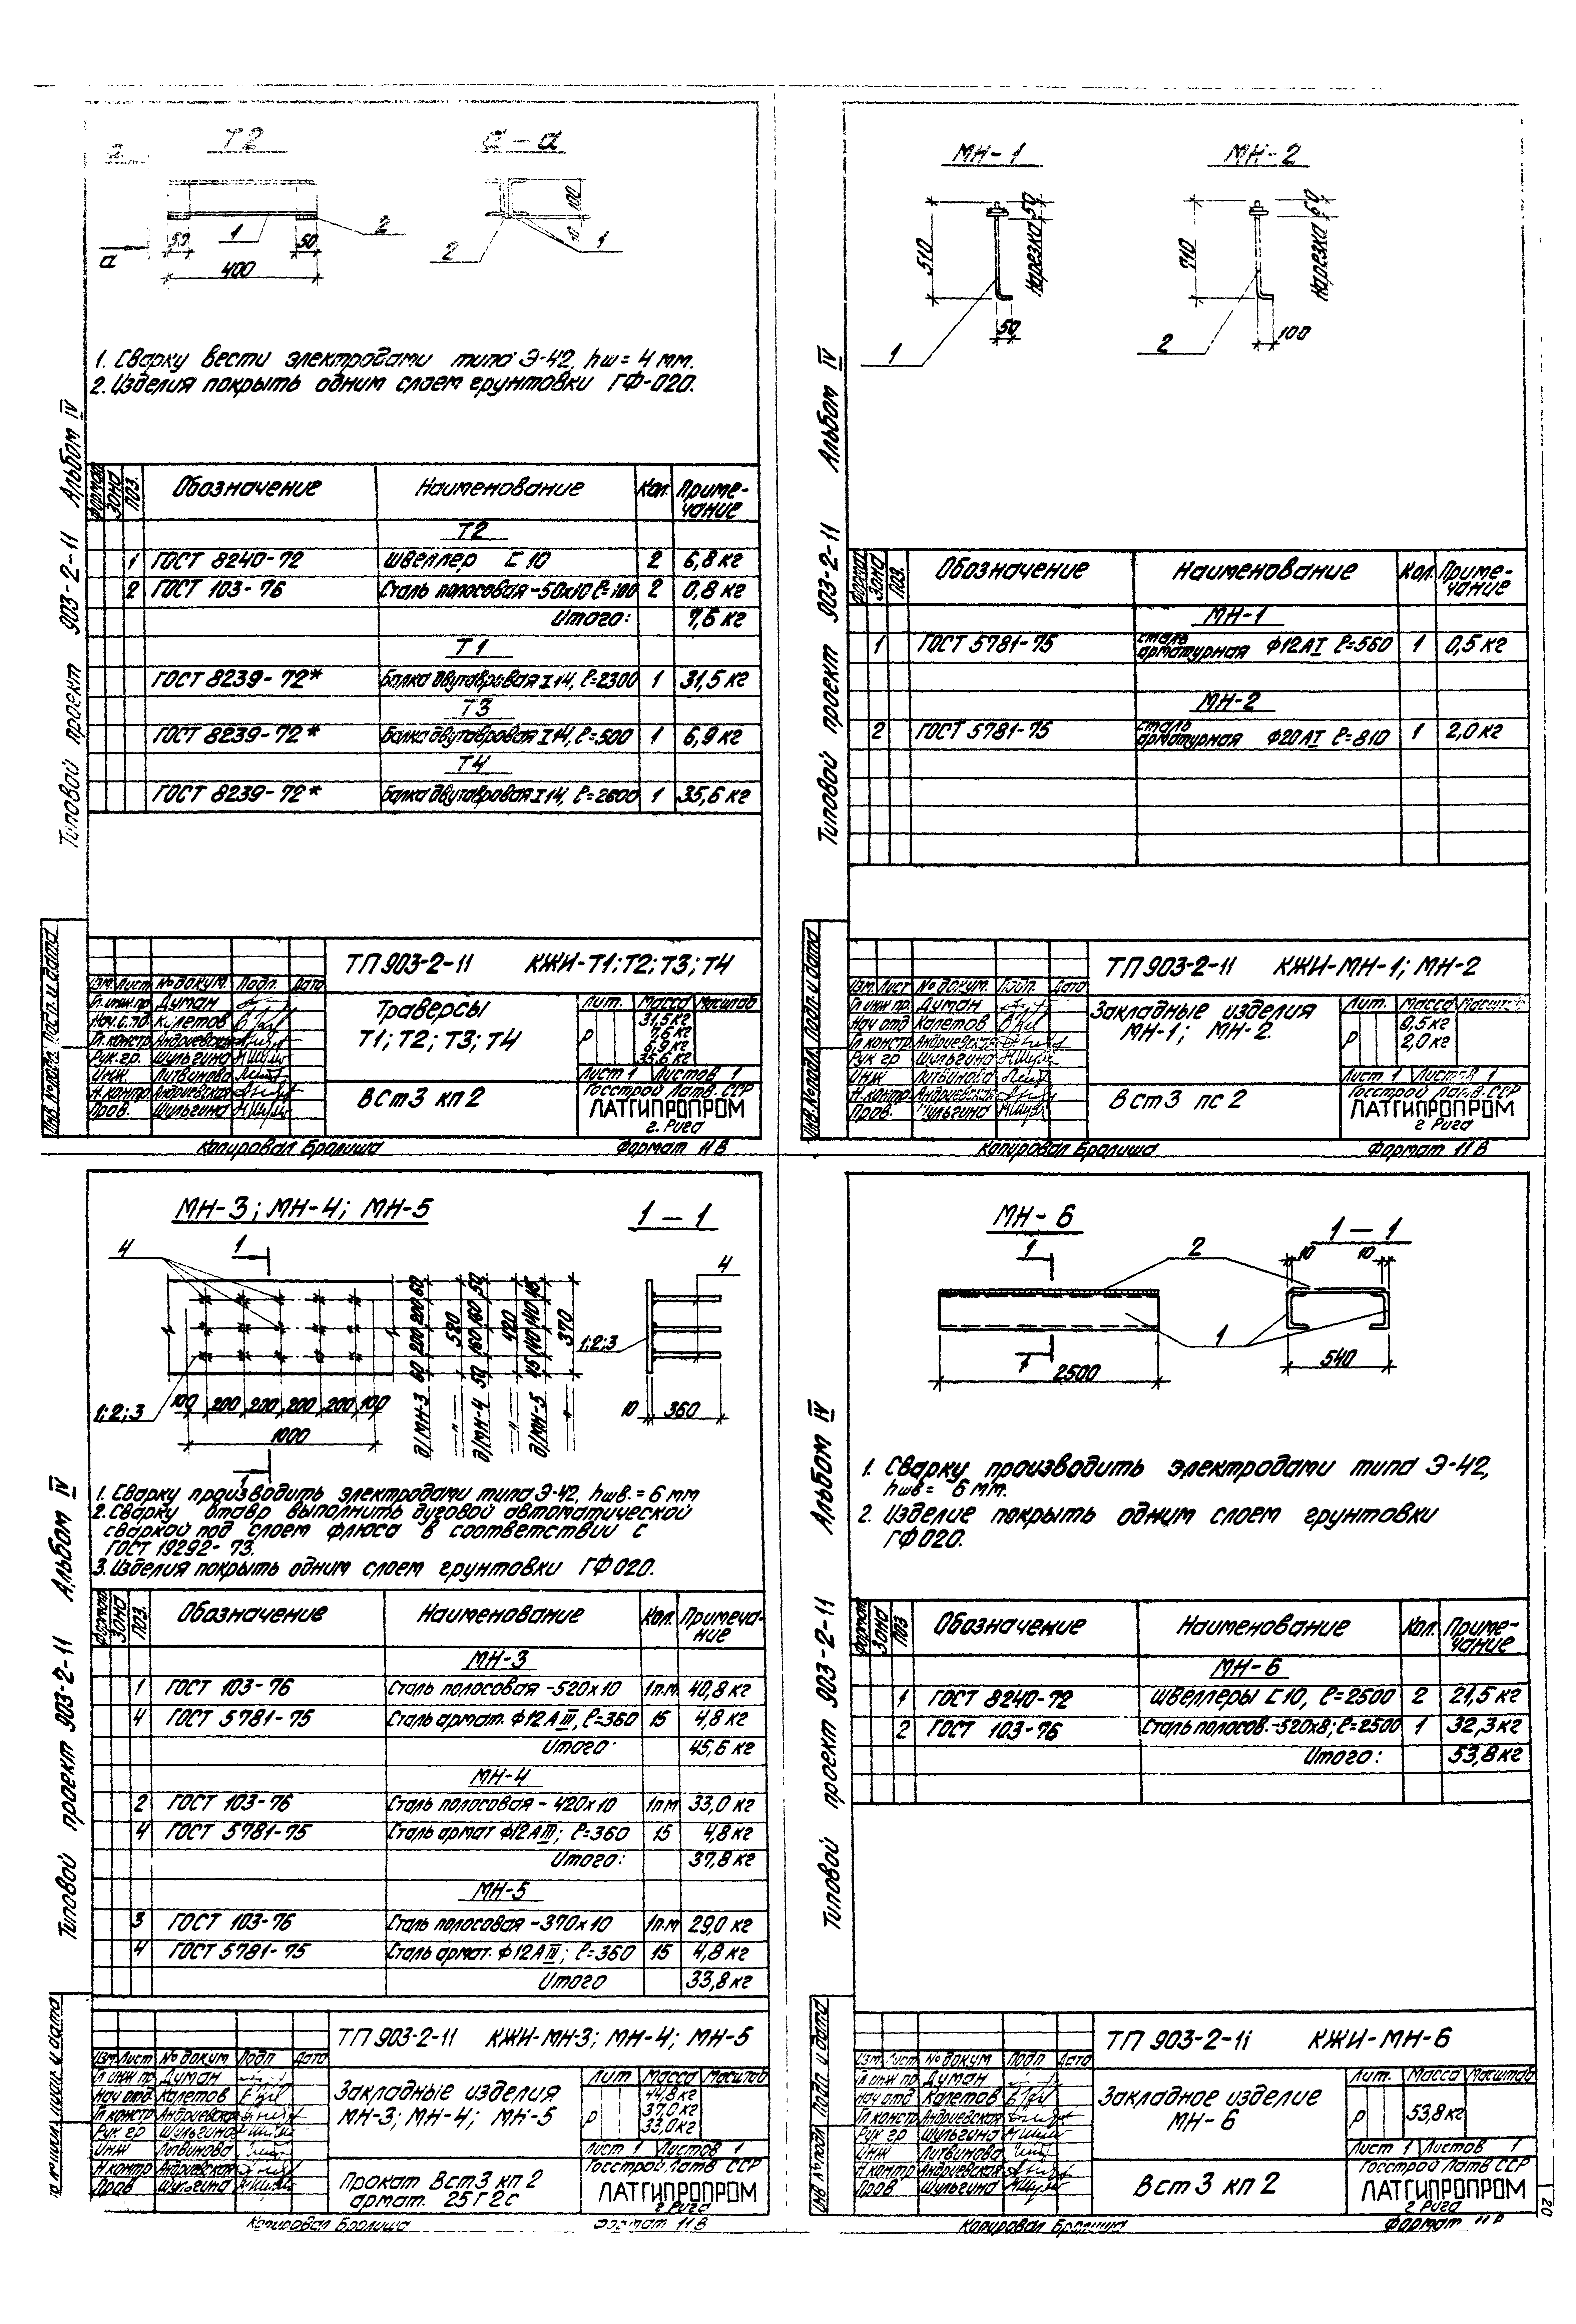 Т2
а-а
50
1
50
2
400
а
100
10
2
1
1. Сварку вести электродами типа Э-42, hш = 4 мм.
2. Изделия покрыть одним слоем грунтовки ГФ-020.
Типовой проект 903-2-11 Альбом IV
Формат Зона Поз. Обозначение Наименование Кол. Примечание
Т2
1 ГОСТ 8240-72 Швеллер С 10 2 6,8 кг
2 ГОСТ 103-76 Сталь полосовая -50х10 ℓ=100 2 0,8 кг
Итого: 7,6 кг
Т1
ГОСТ 8239-72* Балка двутавровая I 14, ℓ=2300 1 31,5 кг
Т3
ГОСТ 8239-72* Балка двутавровая I 14, ℓ=500 1 6,9 кг
Т4
ГОСТ 8239-72* Балка двутавровая I 14, ℓ=2600 1 35,6 кг
ТП 903-2-11 КЖИ-Т1; Т2; Т3; Т4
Изм. Лист № докум. Подп. Дата
Гл. инж. пр. Думан
Нач. отд. Калетов
Гл. констр. Андриевская
Рук. гр. Шульгина
Инж. Литвинова
Н. контр. Андриевская
Пров. Шульгина
Траверсы
Т1; Т2; Т3; Т4
Лит. Масса Масштаб
Р
31,5 кг
7,6 кг
6,9 кг
35,6 кг
Лист 1 Листов 1
ВСт3 кп 2
Госстрой Латв. ССР
ЛАТГИПРОПРОМ
г. Рига
Копировал Бролиша Формат 11В
МН-1
510
50
Нарезка
50
1
МН-2
710
50
Нарезка
100
2
Типовой проект 903-2-11 Альбом IV
Формат Зона Поз. Обозначение Наименование Кол. Примечание
МН-1
1 ГОСТ 5781-75 сталь арматурная Ф12АI ℓ=560 1 0,5 кг
МН-2
2 ГОСТ 5781-75 сталь арматурная Ф20АI ℓ=810 1 2,0 кг
Инв. № подл. Подп. и дата
ТП 903-2-11 КЖИ-МН-1; МН-2
Изм. Лист № докум. Подп. Дата
Гл. инж. пр. Думан
Нач. отд. Калетов
Гл. констр. Андриевская
Рук. гр Шульгина
Инж Литвинова
Н. контр. Андриевская
Пров. Шульгина
Закладные изделия
МН-1; МН-2.
Лит. Масса Масштаб
Р
0,5 кг
2,0 кг
Лист 1 Листов 1
ВСт3 пс 2
Госстрой Латв. ССР
ЛАТГИПРОПРОМ
г Рига
Копировал Бролиша Формат 11В
МН-3; МН-4; МН-5
1-1
4
1
1;2;3
100 200 200 200 200 100
1000
1
60 200 200 60
520
50 160 160 50
420
45 140 140 45
370
д/МН-3
д/МН-4
д/МН-5
4
1;2;3
10 360
1. Сварку производить электродами типа Э-42, hшв. = 6 мм
2. Сварку втавр выполнить дуговой автоматической
сваркой под слоем флюса в соответствий с
ГОСТ 19292-73.
3. Изделия покрыть одним слоем грунтовки ГФ 020.
Типовой проект 903-2-11 Альбом IV
Формат Зона Поз. Обозначение Наименование Кол. Примечание
МН-3
1 ГОСТ 103-76 Сталь полосовая -520х10 1п.м 40,8 кг
4 ГОСТ 5781-75 Сталь армат. Ф12АIII, ℓ=360 15 4,8 кг
Итого: 45,6 кг
МН-4
2 ГОСТ 103-76 Сталь полосовая -420х10 1п.м 33,0 кг
4 ГОСТ 5781-75 Сталь армат Ф12АIII; ℓ=360 15 4,8 кг
Итого: 37,8 кг
МН-5
3 ГОСТ 103-76 Сталь полосовая -370х10 1п.м 29,0 кг
4 ГОСТ 5781-75 Сталь армат. Ф12АIII; ℓ=360 15 4,8 кг
Итого 33,8 кг
ТП 903-2-11 КЖИ-МН-3; МН-4; МН-5
Изм. Лист № докум Подп Дата
Гл инж пр Думан
Нач отд Калетов
Гл констр Андриевская
Рук гр Шульгина
Инж Литвинова
Н контр Андриевская
Пров Шульгина
Закладные изделия
МН-3; МН-4; МН-5
Лит Масса Масштаб
Р
44,8 кг
37,0 кг
33,0 кг
Лист 1 Листов 1
Прокат ВСт3 кп 2
армат. 25Г2С
Госстрой Латв ССР
ЛАТГИПРОПРОМ
г. Рига
Копировал Бролиша Формат 11В
МН-6
1-1
1
2
1
1
2500
10 10
540
1. Сварку производить электродами типа Э-42,
hшв = 6 мм.
2. Изделие покрыть одним слоем грунтовки
ГФ 020.
Типовой проект 903-2-11 Альбом IV
Формат Зона Поз Обозначение Наименование Кол. Примечание
МН-6
1 ГОСТ 8240-72 Швеллеры С 10, ℓ=2500 2 21,5 кг
2 ГОСТ 103-76 Сталь полосов. -520х8; ℓ=2500 1 32,3 кг
Итого: 53,8 кг
Инв № подл Подп. и дата
ТП 903-2-11 КЖИ-МН-6
Изм. Лист № докум Подп Дата
Гл инж пр Думан
Нач отд Калетов
Гл констр Андриевская
Рук гр Шульгина
Инж Литвинова
Н контр Андриевская
Пров Шульгина
Закладное изделие
МН-6
Лит. Масса Масштаб
Р 53,8 кг
Лист 1 Листов 1
ВСт3 кп 2
Госстрой Латв ССР
ЛАТГИПРОПРОМ
г Рига
Копировал Бролиша Формат 11В
20